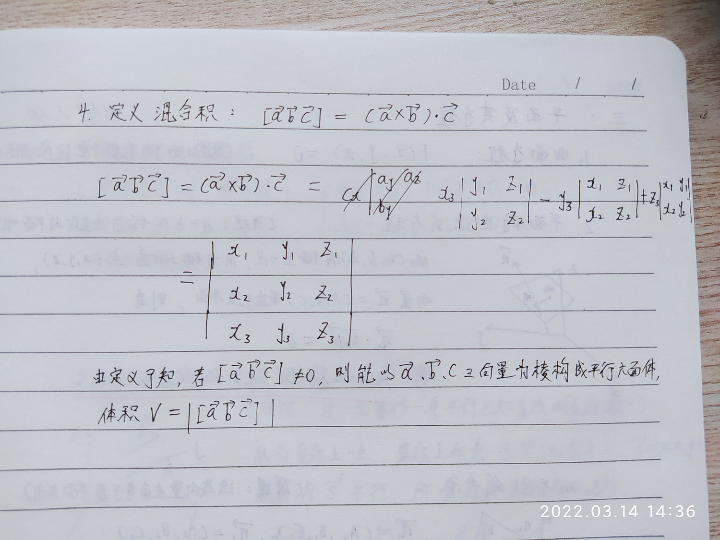 Date / /
4. 定义 混合积: [a⃗ b⃗ c⃗] = (a⃗×b⃗)·c⃗
[a⃗ b⃗ c⃗] = (a⃗×b⃗)·c⃗ = x₃ |y₁ z₁; y₂ z₂| - y₃ |x₁ z₁; x₂ z₂| + z₃ |x₁ y₁; x₂ y₂|
= | x₁ y₁ z₁
x₂ y₂ z₂
x₃ y₃ z₃ |
由定义可知, 若 [a⃗ b⃗ c⃗] ≠0, 则能以 a⃗、b⃗、c 三向量为棱构成平行六面体,
体积 V = |[a⃗ b⃗ c⃗]|
2022.03.14 14:36